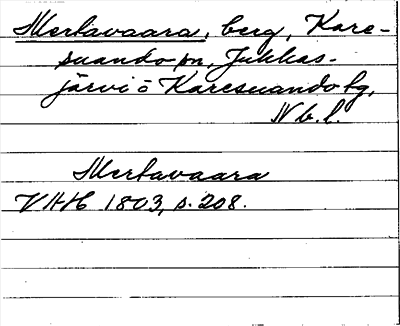 Mertavaara, berg, Kare-
suando sn, Jukkas-
järvi o Karesuando tg,
Nb. l.
Mertavaara
VHH 1803, s. 208.